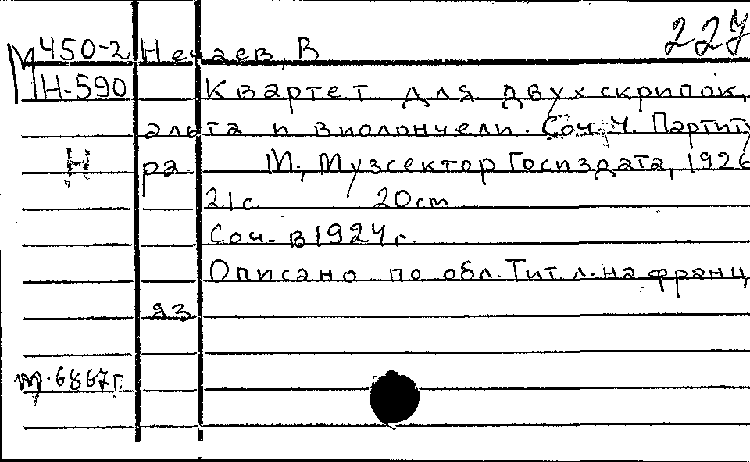 227
М 450-2 Нечаев, В
Н-590 Квартет для двух скрипок,
альта и виолончели. Соч. 4. Партиту
Н ра М., Музсектор Госиздата, 1926
21с. 20cm
Соч. в 1924 г.
Описано по обл. Тит. л. на франц
яз